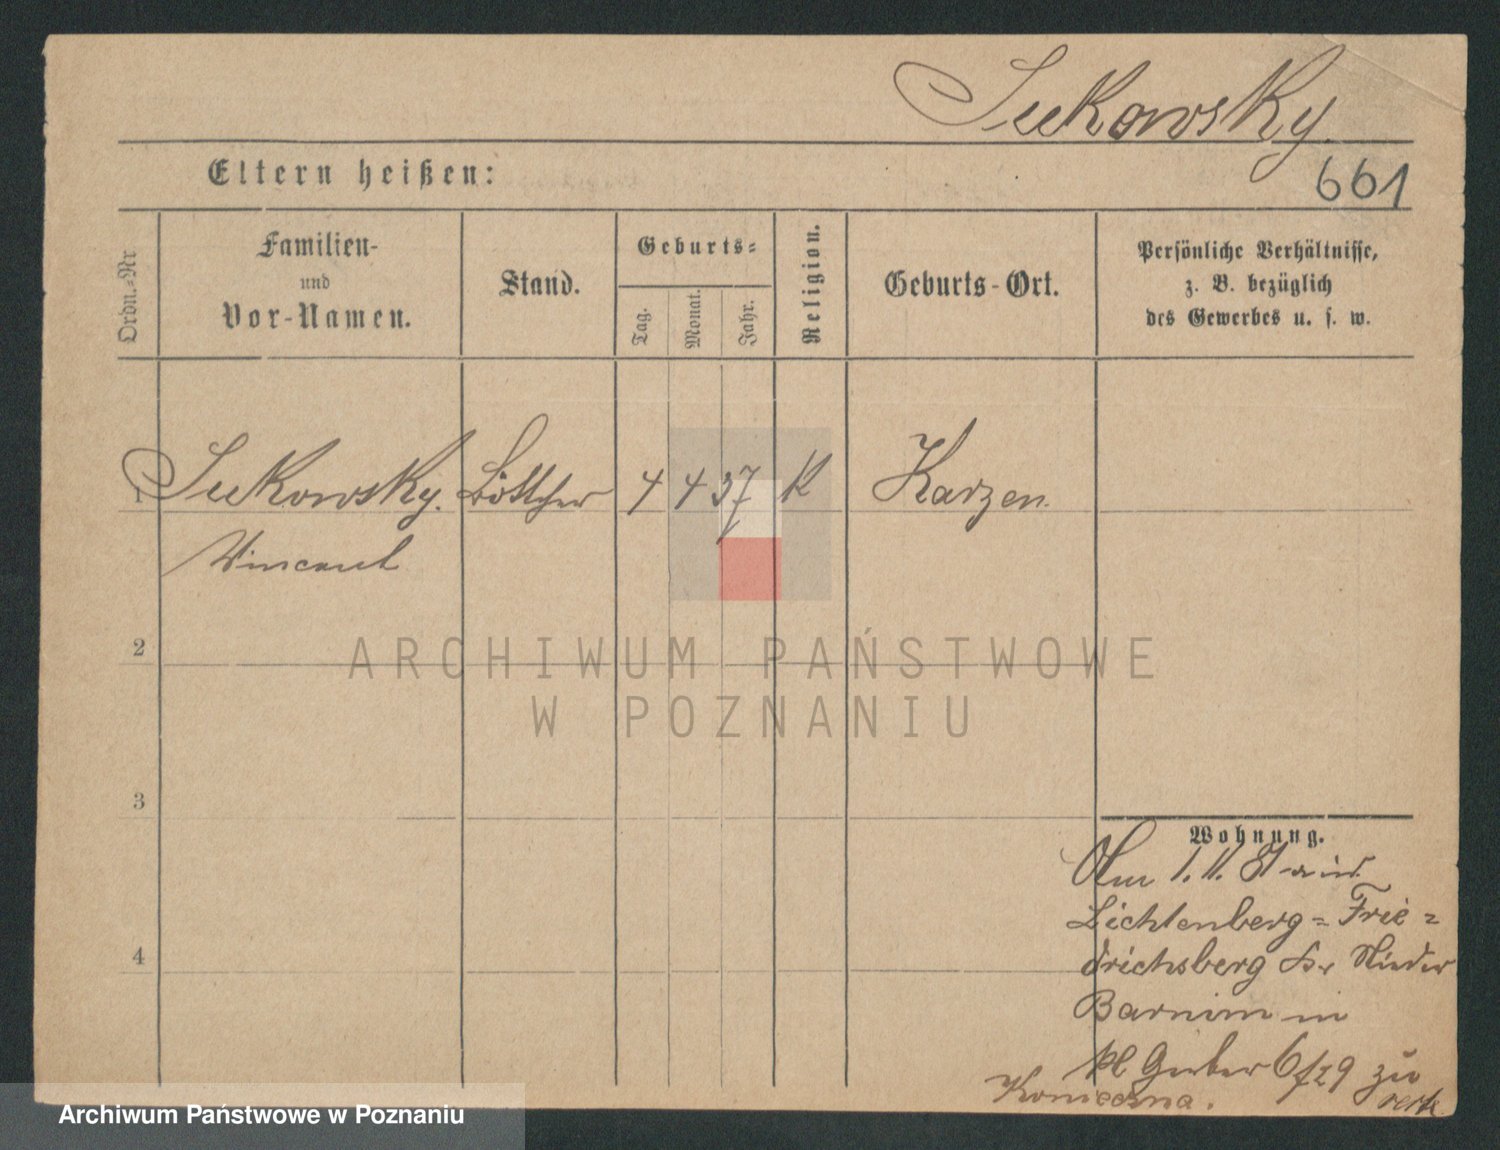 Sukowsky.
Eltern heißen:
661
Ordn.-Nr
Familien-
und
Vor-Namen.
Stand.
Geburts-
Tag.
Monat.
Jahr.
Religion.
Geburts-Ort.
Persönliche Verhältnisse,
z. B. bezüglich
des Gewerbes u. s. w.
1 Sukowsky. Böttcher 4 4 37 K Karzen.
Vincent
2
ARCHIWUM PAŃSTWOWE
W POZNANIU
3
Wohnung.
1. 11.
Lichtenberg = Frie =
drichsberg Kr Nieder
Barnim in
kl Gerber 6/29 zu
Konieczna.
4
Archiwum Państwowe w Poznaniu